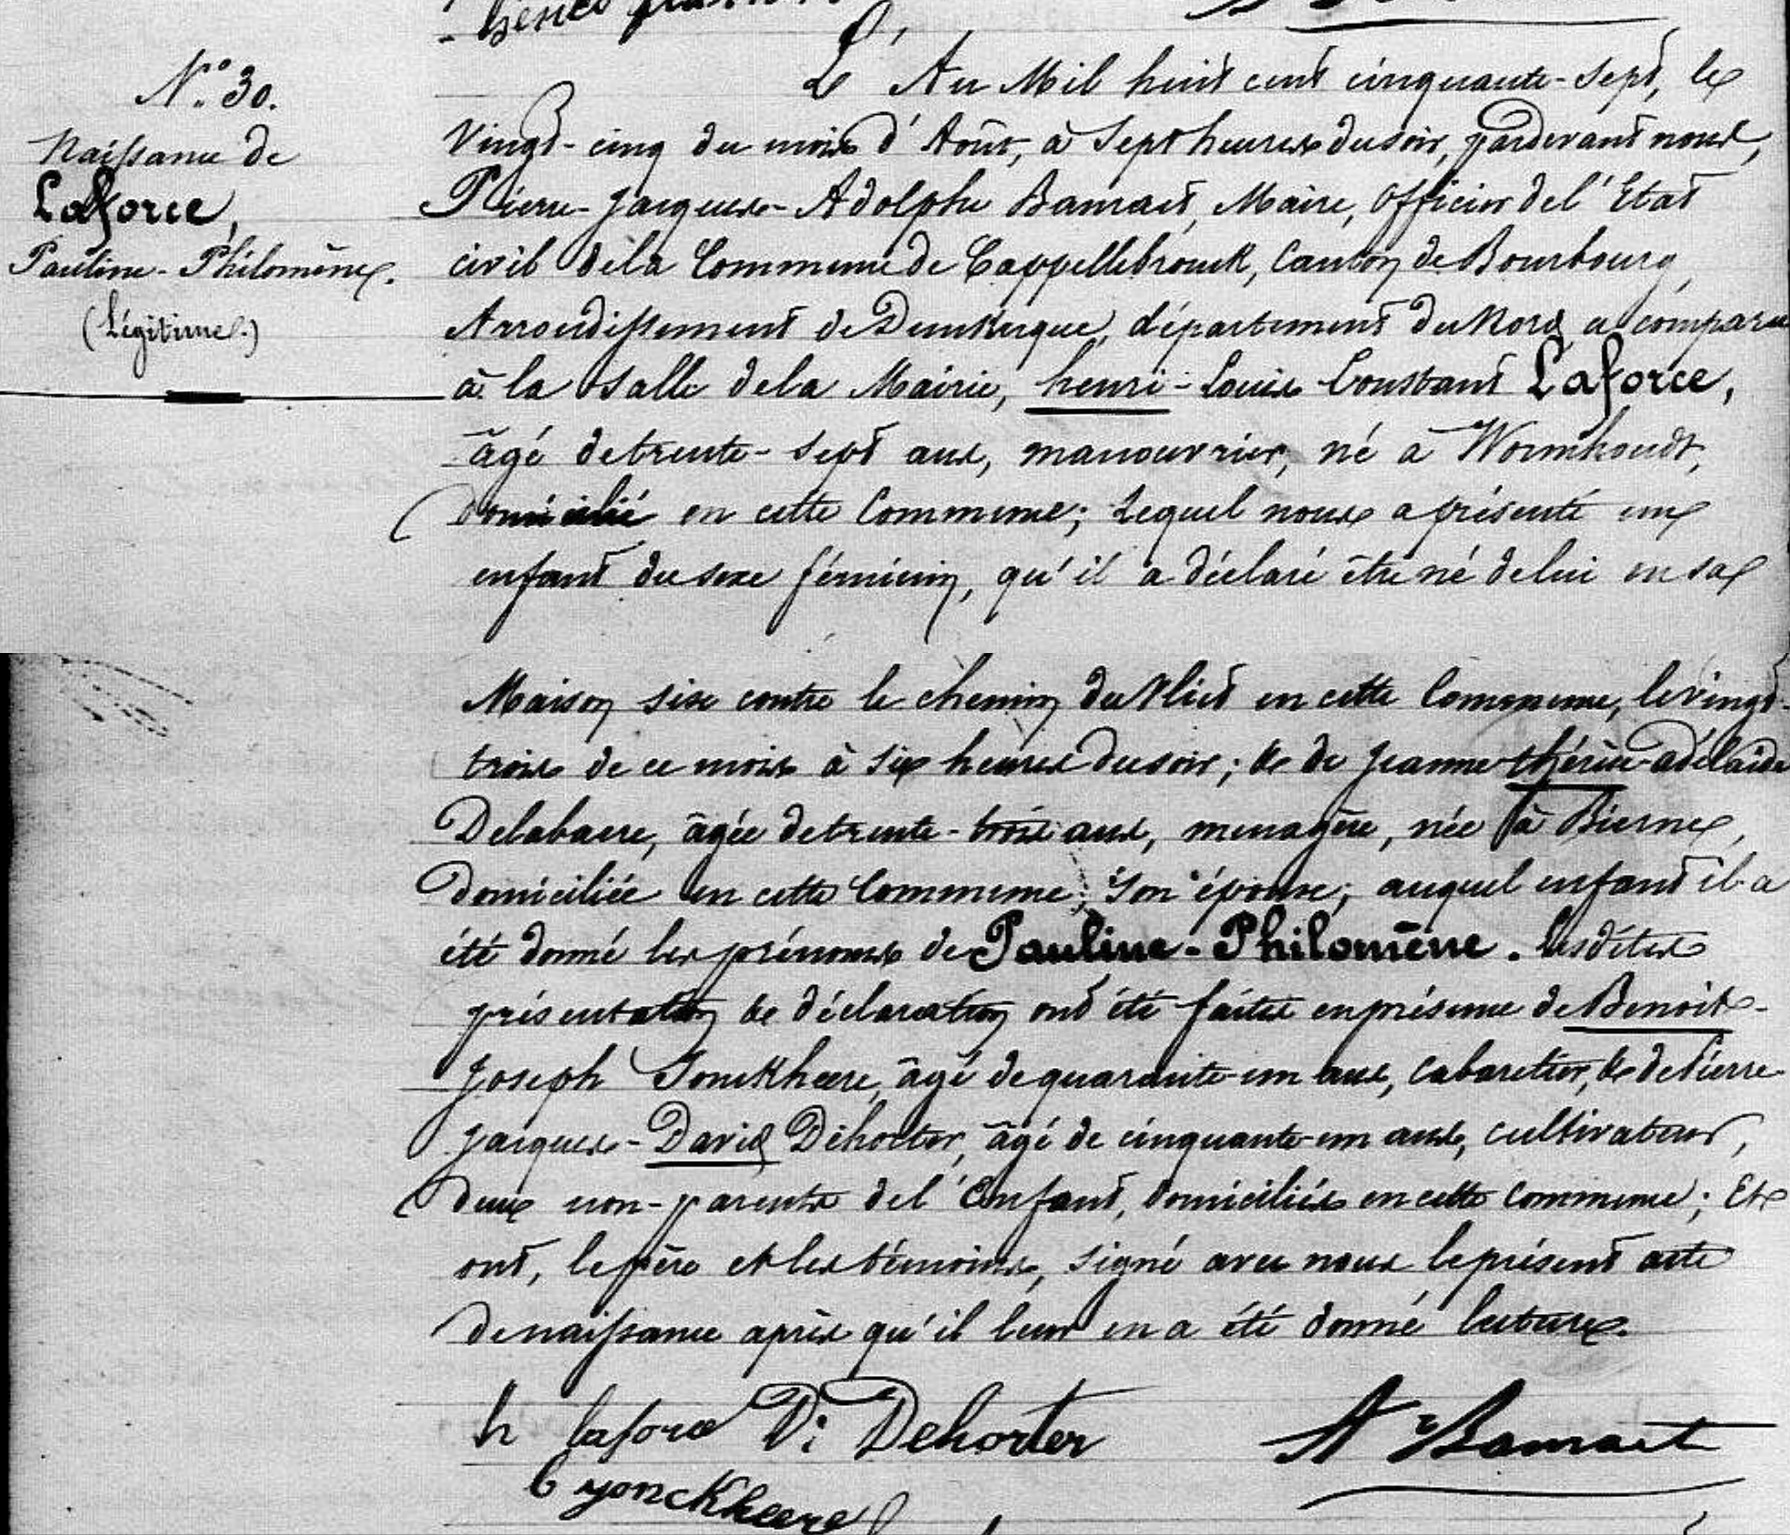 N.° 30.
Naissance de
Laforce,
Pauline-Philomène.
(Légitime.)
L'An Mil huit cent cinquante-sept, le
vingt-cinq du mois d'Août, à sept heures du soir, pardevant nous,
Pierre-Jacques-Adolphe Bamaet, Maire, Officier de l'Etat
civil de la Commune de Cappellebrouck, Canton de Bourbourg,
Arrondissement de Dunkerque, département du Nord, a comparu
à la salle de la Mairie, henri-Louis Constant Laforce,
âgé de trente-sept ans, manouvrier, né à Wormhoudt,
domicilié en cette Commune; Lequel nous a présenté un
enfant du sexe féminin, qu'il a déclaré être né de lui en sa
Maison sise contre le chemin du Vliet en cette Commune, le vingt-
trois de ce mois à six heures du soir; & de Jeanne-thérèse-adélaïde
Delabaere, âgée de trente-trois ans, menagère, née à Bierne,
domiciliée en cette Commune, son épouse; auquel enfant il a
été donné les prénoms de Pauline-Philomène. Lesdites
présentation & déclaration ont été faites en présence de Benoit-
Joseph Jonckheere, âgé de quarante-un ans, cabaretier, & de Pierre
Jacques-David Dehorter, âgé de cinquante-un ans, cultivateur,
deux non-parents de l'Enfant, domiciliés en cette commune; Et
ont, le père et les témoins, signé avec nous le présent acte
de naissance après qu'il leur en a été donné lecture.
h laforce Di Dehorter A Bamaet
b yonckheere